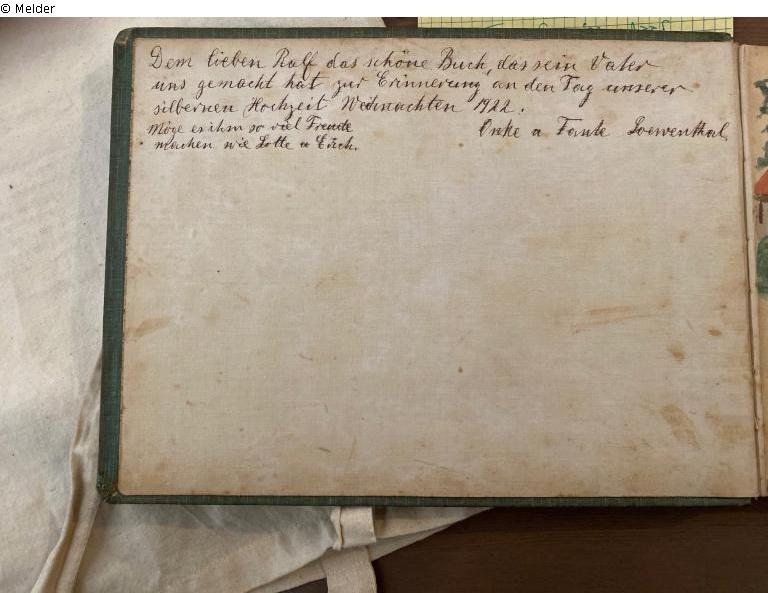 © Melder
Dem lieben Ralf das schöne Buch, das sein Vater
uns gemacht hat zur Erinnerung an den Tag unserer
silbernen Hochzeit Weihnachten 1922.
Möge es ihm so viel Freude
machen wie Lotte u Erich.
Onke u Tante Loewenthal